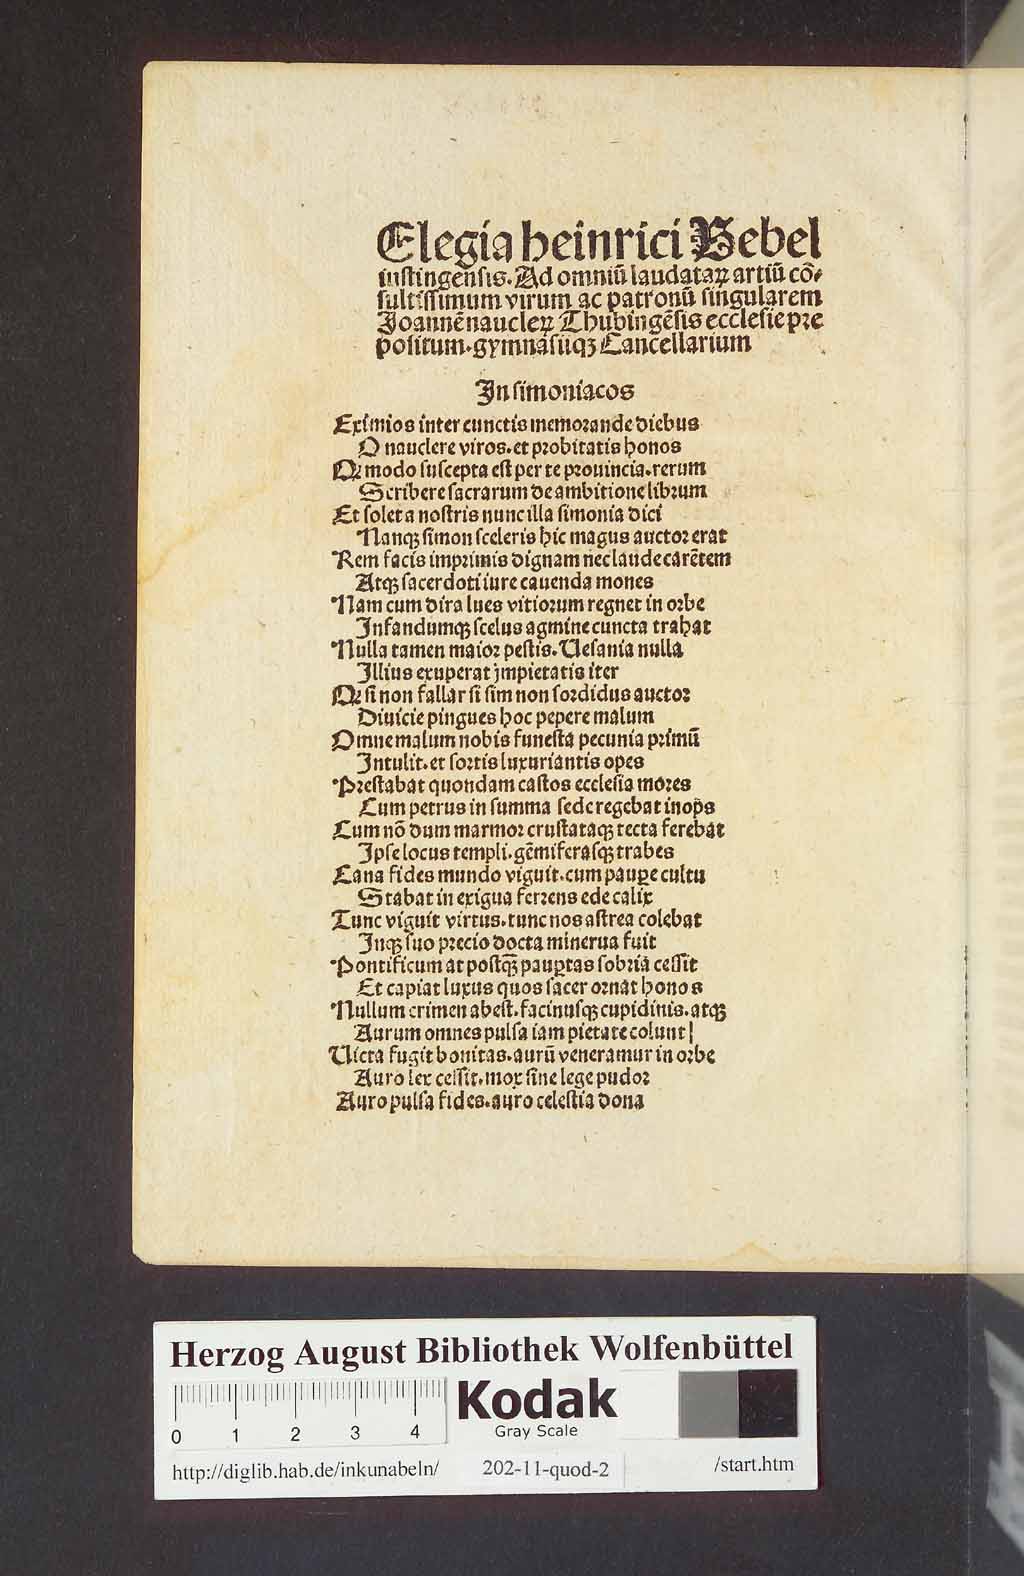 Elegia heinrici Bebel
iustingensis. Ad omniū laudataꝝ artiū cō⸗
sultissimum virum ac patronū singularem
Joannē naucleꝝ Thubingēsis ecclesie pre
positum. gymnasiiqꝫ Cancellarium
In simoniacos
Eximios inter cunctis memorande diebus
O nauclere viros. et probitatis honos
Qꝛ modo suscepta est per te prouincia. rerum
Scribere sacrarum de ambitione librum
Et solet a nostris nunc illa simonia dici
Nanqꝫ simon sceleris hic magus auctor erat
Rem facis imprimis dignam nec laude carētem
Atqꝫ sacerdoti iure cauenda mones
Nam cum dira lues vitiorum regnet in orbe
Infandumqꝫ scelus agmine cuncta trahat
Nulla tamen maior pestis. Uesania nulla
Illius exuperat jmpietatis iter
Qꝛ si non fallar si sim non sordidus auctor
Diuicie pingues hoc pepere malum
Omne malum nobis funesta pecunia primū
Intulit. et sortis luxuriantis opes
Prestabat quondam castos ecclesia mores
Cum petrus in summa sede regebat inops
Cum nō dum marmor crustataqꝫ tecta ferebat
Ipse locus templi. gēmiferasqꝫ trabes
Cana fides mundo viguit. cum pauꝑe cultu
Stabat in exigua ferrens ede calix
Tunc viguit virtus. tunc nos astrea colebat
Inqꝫ suo precio docta minerua fuit
Pontificum at postqꝫ̄ pauꝑtas sobria cessit
Et capiat luxus quos sacer ornat honos
Nullum crimen abest. facinusqꝫ cupidinis. atqꝫ
Aurum omnes pulsa iam pietate colunt|
Uicta fugit bonitas. aurū veneramur in orbe
Auro lex cessit. mox sine lege pudor
Auro pulsa fides. auro celestia dona
Herzog August Bibliothek Wolfenbüttel
0 1 2 3 4
Kodak
Gray Scale
http://diglib.hab.de/inkunabeln/ 202-11-quod-2 /start.htm